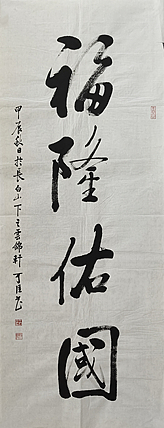 福隆佑國
甲辰秋日於長白山下之雲錦軒